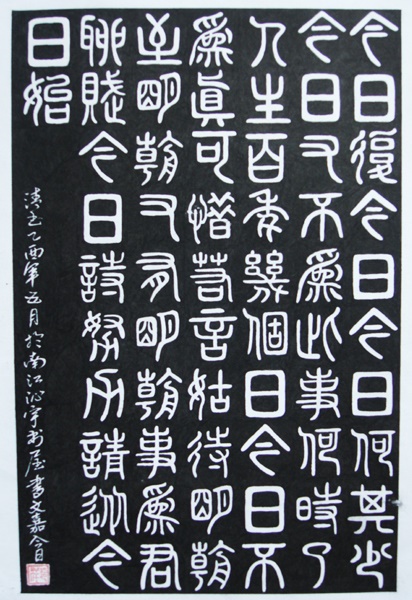 今日復今日今日何其少
今日又不爲此事何時了
人生百年幾個日今日不
爲眞可惜若言姑待明朝
至明朝又有明朝事爲君
聊賦今日詩努力請從今
日始
乙酉年五月於南江沁宇书屋書文嘉今日